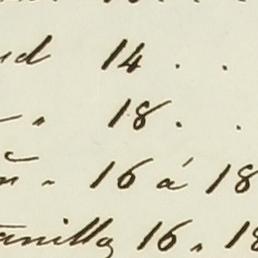 14 . .
" 18 . .
" 16 á 18
anilla 16 " 18